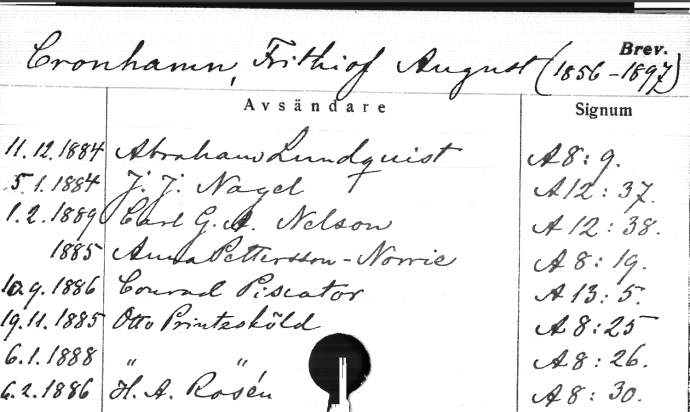 Brev.
Cronhamn, Frithiof August (1856-1897)
Avsändare Signum
11.12.1884 Abraham Lundquist A 8: 9.
5.1.1884 J. J. Nagel A 12: 37.
1.2.1889 Carl G. A. Nelson A 12: 38.
1885 Anna Pettersson-Norrie A 8: 19.
10.9.1886 Conrad Piscator A 13: 5.
19.11.1885 Otto Printzsköld A 8: 25
6.1.1888 " " A 8: 26.
6.2.1886 H. A. Rosén A 8: 30.